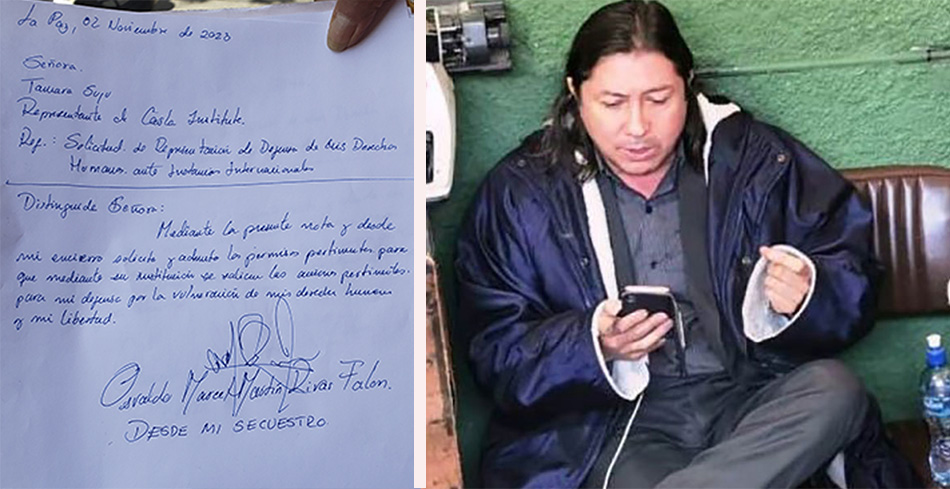 La Paz, 02 Noviembre de 2023
Señora.
Tamara Suju
Representante de Casla Institute.
Ref.: Solicitud de Representación de Defensa de mis Derechos
Humanos ante Instancias Internacionales
Distinguida Señora:
Mediante la presente nota y desde
mi encierro solicito y admito los permisos pertinentes para
que mediante su institución se realicen las pertinentes.
para mi defensa por la vulneración de mis derechos humanos
y mi libertad.
Osvaldo Marcel Martin Rivas Falon.
DESDE MI SECUESTRO